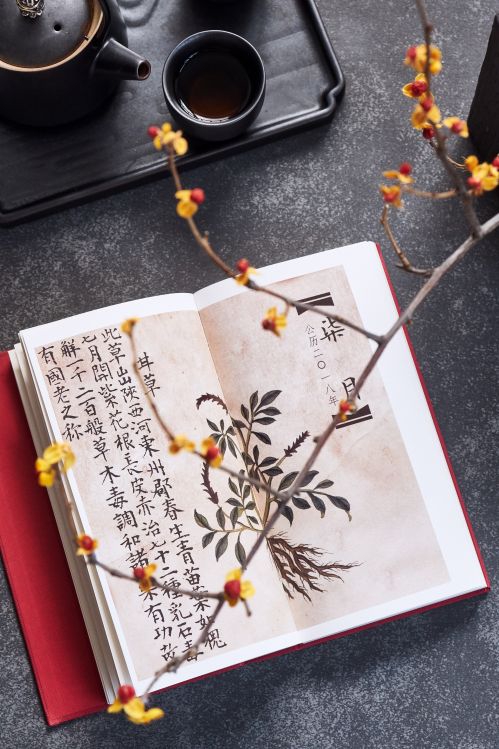 柒月
公历二〇一八年
甘草
此草山陝西河東州郡春生青苗葉如槐
七月開紫花根長皮赤治七十二種乳石毒
解一千二百般草木毒調和諸有功故
有國老之称